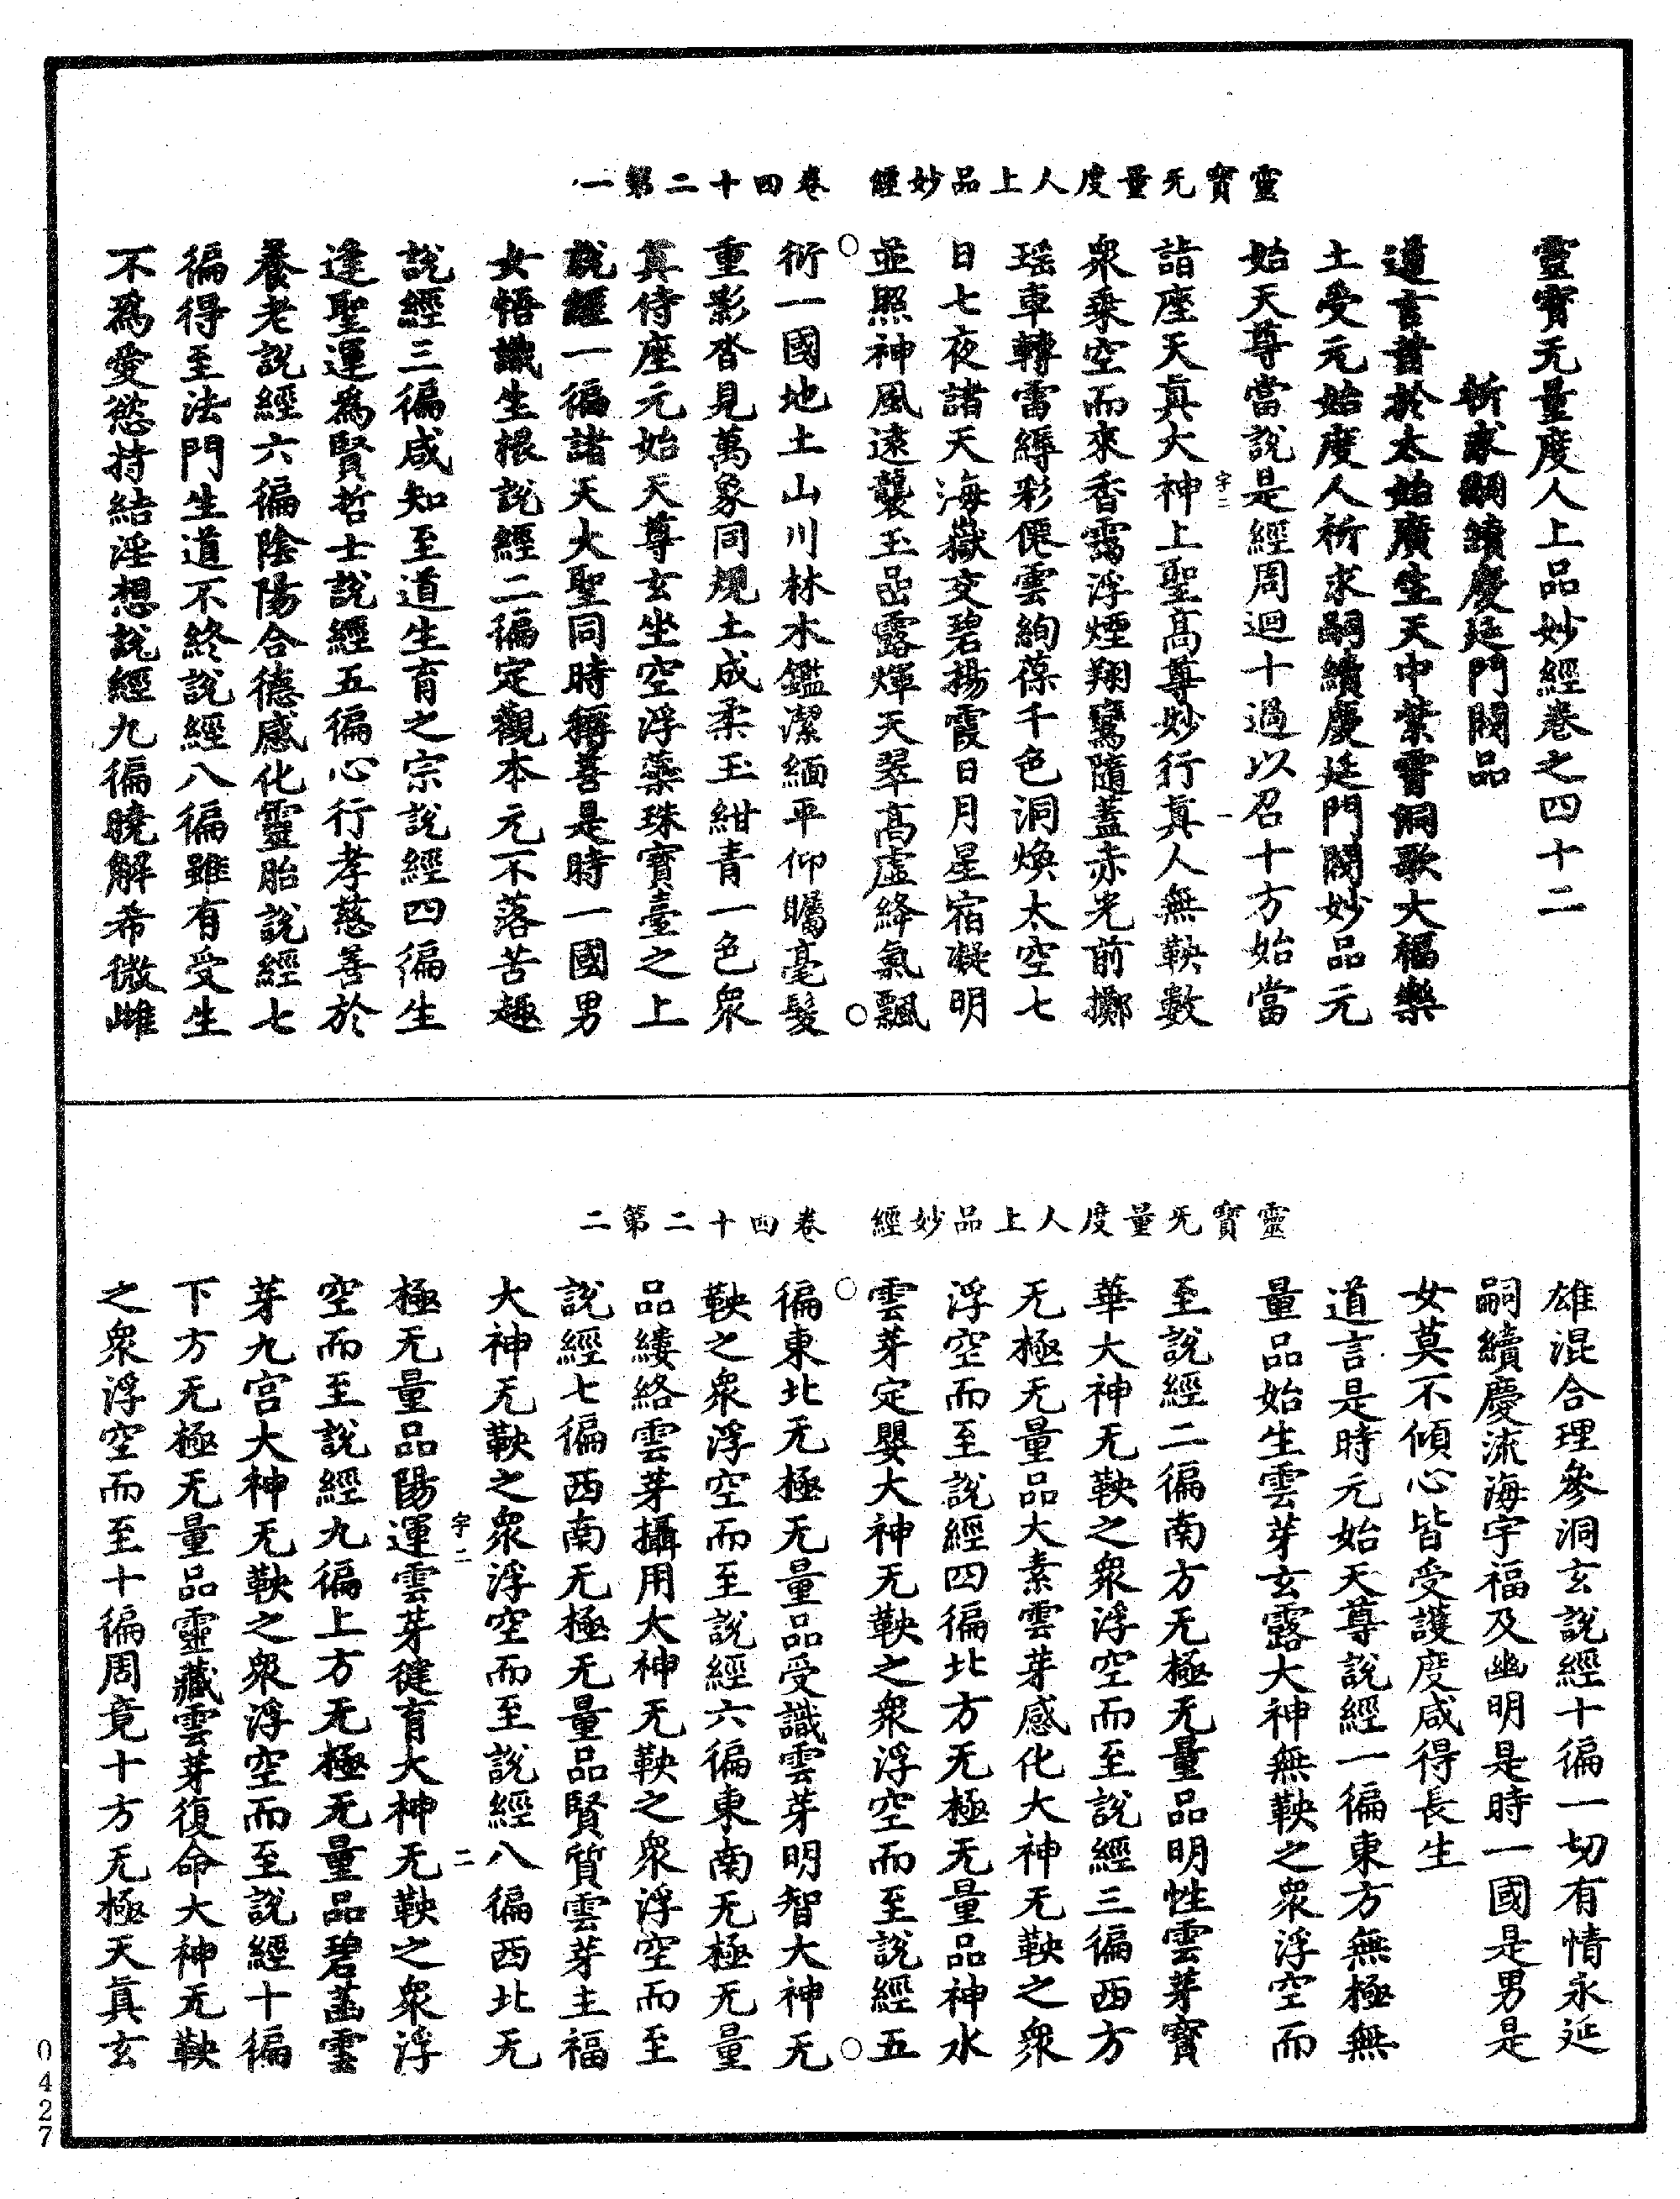 靈寶无量度人上品妙經　卷四十二第一
靈寶无量度人上品妙經卷之四十二
祈求嗣續慶延門閥品
道言昔於太始廣生天中紫霄洞歌大福樂
土受元始度人祈求嗣續慶延門閥妙品元
始天尊當說是經周迴十過以召十方始當
宇二　一
詣座天真大神上聖高尊妙行真人無鞅數
衆乘空而來香靄浮煙翔鸞隨蓋赤光前擲
瑤車轉雷縟彩僊雲絢葆千色洞煥太空七
日七夜諸天海嶽交碧揚霞日月星宿凝明
並照神風遠襲玉嵒露煇天翠高虛絳氣飄
衍一國地土山川林木鑑潔緬平仰矚毫髮
重影沓見萬象同規土成柔玉紺青一色衆
真侍座元始天尊玄坐空浮蘂珠寶臺之上
說經一徧諸天大聖同時稱善是時一國男
女悟識生根說經二徧定觀本元不落苦趣
說經三徧咸知至道生育之宗說經四徧生
逢聖運為賢哲士說經五徧心行孝慈善於
養老說經六徧陰陽合德感化靈胎說經七
徧得至法門生道不終說經八徧雖有受生
不爲愛慾持結淫想說經九徧曉解希微雌
靈寶无量度人上品妙經　卷四十二第二
雄混合理參洞玄說經十徧一切有情永延
嗣續慶流海宇福及幽明是時一國是男是
女莫不傾心皆受護度咸得長生
道言是時元始天尊說經一徧東方無極無
量品始生雲芽玄露大神無鞅之衆浮空而
至說經二徧南方无極无量品明性雲芽寶
華大神无鞅之衆浮空而至說經三徧西方
无極无量品大素雲芽感化大神无鞅之衆
浮空而至說經四徧北方无極无量品神水
雲芽定嬰大神无鞅之衆浮空而至說經五
徧東北无極无量品受識雲芽明智大神无
鞅之衆浮空而至說經六徧東南无極无量
品縷絡雲芽攝用大神无鞅之衆浮空而至
說經七徧西南无極无量品賢質雲芽主福
大神无鞅之衆浮空而至說經八徧西北无
宇二　二
極无量品陽運雲芽健育大神无鞅之衆浮
空而至說經九徧上方无極无量品碧菡雲
芽九宮大神无鞅之衆浮空而至說經十徧
下方无極无量品靈藏雲芽復命大神无鞅
之衆浮空而至十徧周竟十方无極天真玄
0427